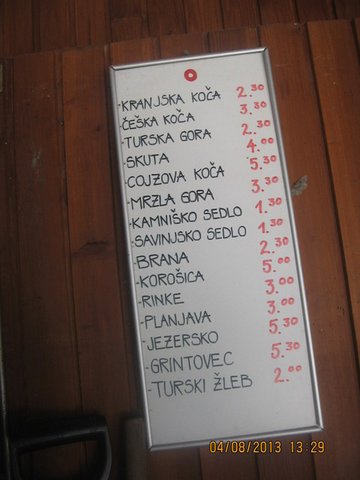 -KRANJSKA KOČA 2.30
-ČEŠKA KOČA 3.30
-TURSKA GORA 2.30
-SKUTA 4.00
-COJZOVA KOČA 5.30
-MRZLA GORA 3.30
-KAMNIŠKO SEDLO 1.30
-SAVINJSKO SEDLO 1.30
-BRANA 2.30
-KOROŠICA 5.00
-RINKE 3.00
-PLANJAVA 3.00
-JEZERSKO 5.30
-GRINTOVEC 5.30
-TURSKI ŽLEB 2.00
04/08/2013 13:29